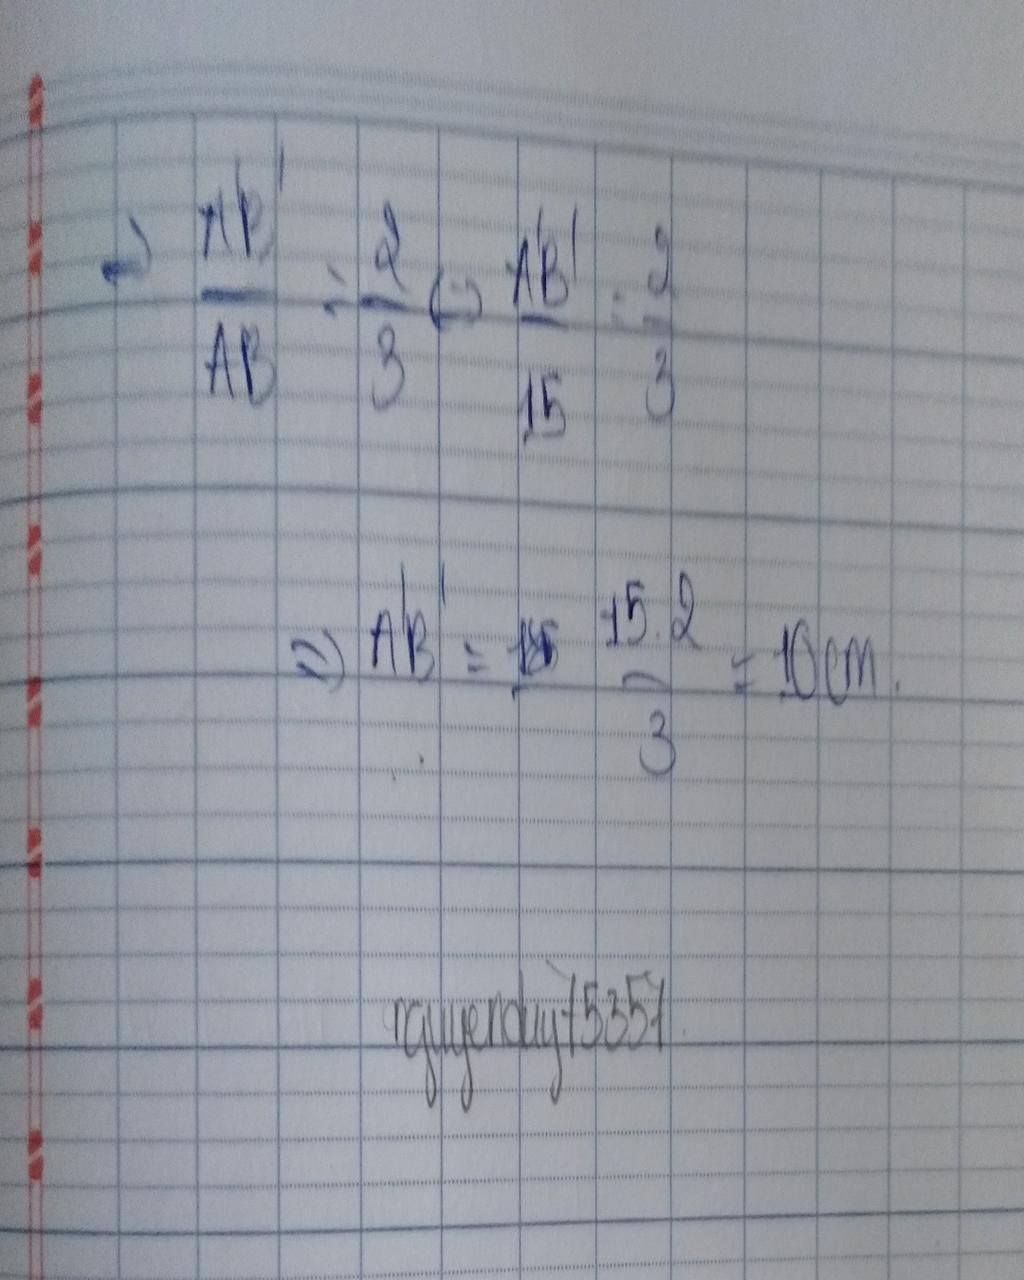 => A'B'/AB = 2/3 <=> A'B'/15 = 2/3
=> A'B' = 15.2/3 = 10cm.
nguyenduy75357